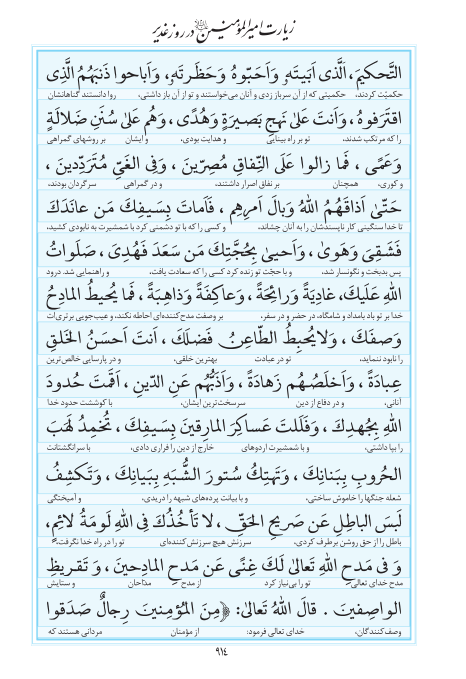 زیارت امیرالمؤمنین علیه‌السلام در روز غدیر
التَّحکیمَ، اَلَّذی اَبَیتَهُ وَ اَحَبّوهُ وَ حَظَرتَهُ، وَ اَباحوا ذَنبَهُمُ الَّذِی
حکمیّت کردند، حکمیتی که از آن سرباز زدی و آنان می‌خواستند و تو از آن باز داشتی، روا دانستند گناهانشان
اقتَرَفوهُ، وَ اَنتَ عَلیٰ نَهجِ بَصیرَةٍ وَ هُدًی، وَ هُم عَلیٰ سُنَنِ ضَلالَةٍ
را که مرتکب شدند، تو بر راه بینایی و هدایت بودی، و ایشان بر روشهای گمراهی
وَ عَمًی، فَما زالوا عَلَی النِّفاقِ مُصِرّینَ، وَ فِی الغَیِّ مُتَرَدِّدینَ،
و کوری، همچنان بر نفاق اصرار داشتند، و در گمراهی سرگردان بودند،
حَتّیٰ اَذاقَهُمُ اللهُ وَبالَ اَمرِهِم، فَاَماتَ بِسَیفِكَ مَن عانَدَكَ
تا خدا سنگینی کار ناپسندشان را به آنان چشاند، و کسی را که با تو دشمنی کرد با شمشیرت به نابودی کشید،
فَشَقِیَ وَ هَویٰ، وَ اَحییٰ بِحُجَّتِكَ مَن سَعَدَ فَهُدِیَ، صَلَواتُ
پس بدبخت و نگونسار شد، و با حجّت تو زنده کرد کسی را که سعادت یافت، و راهنمایی شد. درود
اللهِ عَلَیكَ، غادِیَةً وَ رائِحَةً، وَ عاکِفَةً وَ ذاهِبَةً، فَما یُحیطُ المادِحُ
خدا بر تو باد بامداد و شامگاه، در حضر و در سفر، بر وصفت مدح‌کننده‌ای احاطه نکند، و عیب‌جویی برتری‌ات
وَصفَكَ، وَ لا یُحبِطُ الطّاعِنُ فَضلَكَ، اَنتَ اَحسَنُ الخَلقِ
را نابود ننماید، تو در عبادت بهترین خلقی، و در پارسایی خالص‌ترین
عِبادَةً، وَ اَخلَصُهُم زَهادَةً، وَ اَذَبُّهُم عَنِ الدّینِ، اَقَمتَ حُدودَ
آنانی، و در دفاع از دین سرسخت‌ترین ایشان، با کوششت حدود خدا
اللهِ بِجُهدِكَ، وَ فَلَلتَ عَساکِرَ المارِقینَ بِسَیفِكَ، تُخمِدُ لَهَبَ
را بپا داشتی، و با شمشیرت اردوهای خارج از دین را فراری دادی، با سرانگشتانت
الحُروبِ بِبَنانِكَ، وَ تَهتِكُ سُتورَ الشُّبَهِ بِبَیانِكَ، وَ تَکشِفُ
شعله جنگها را خاموش ساختی، و با بیانت پرده‌های شبهه را دریدی، و آمیختگی
لَبسَ الباطِلِ عَن صَریحِ الحَقِّ، لا تَأخُذُكَ فِی اللهِ لَومَةُ لائِمٍ،
باطل را از حق روشن برطرف کردی، سرزنش هیچ سرزنش کننده‌ای تو را در راه خدا نگرفت.
وَ فی مَدحِ اللهِ تَعالیٰ لَكَ غِنًی عَن مَدحِ المادِحینَ، وَ تَقریظِ
مدح خدای تعالی تو را بی‌نیاز کرد از مدح مدّاحان و ستایش
الواصِفینَ . قالَ اللهُ تَعالیٰ: ﴿مِنَ المُؤمِنینَ رِجالٌ صَدَقوا
وصف‌کنندگان، خدای تعالی فرمود: از مؤمنان مردانی هستند که
٩١٤